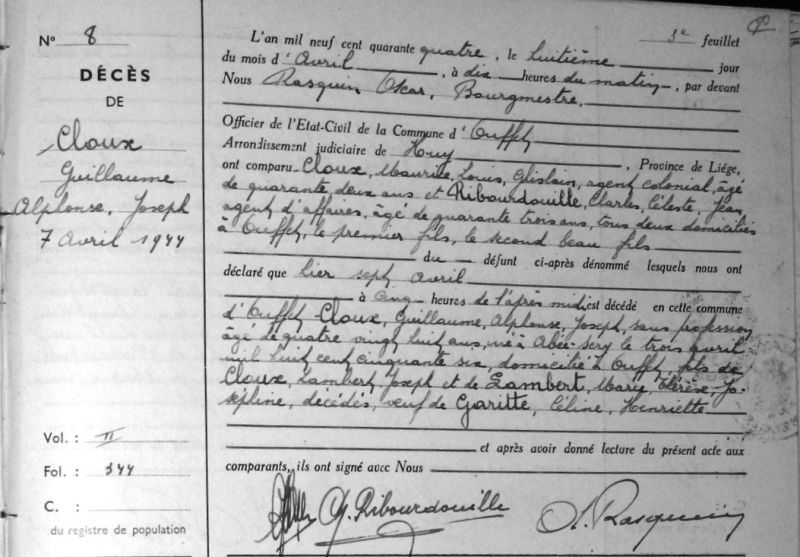 N° 8
DÉCÈS
DE
Cloux
Guillaume
Alphonse, Joseph
7 Avril 1944
Vol. : II
Fol. : 344
C. :
du registre de population
3e feuillet
L'an mil neuf cent quarante quatre, le huitième jour
du mois d'Avril, à dix heures du matin, par devant
Nous Rasquin Oscar, Bourgmestre,
Officier de l'Etat-Civil de la Commune d'Ouffet
Arrondissement judiciaire de Huy, Province de Liége,
ont comparu Cloux, Maurice, Louis, Ghislain, agent colonial, âgé
de quarante deux ans et Ribourdouille, Charles, Céleste, Jean
agent d'affaires, âgé de quarante trois ans, tous deux domiciliés
à Ouffet, le premier fils, le second beau fils
du défunt ci-après dénommé lesquels nous ont
déclaré que hier sept avril
à cinq heures de l'après midi est décédé en cette commune
d'Ouffet Cloux, Guillaume, Alphonse, Joseph, sans profession
âgé de quatre vingt huit ans, né à Abée-Scry le trois avril
mil huit cent cinquante six, domicilié à Ouffet, fils de
Cloux, Lambert, Joseph et de Lambert, Marie, Thérèse, Jo-
séphine, décédés, veuf de Garitte, Céline, Henriette
et après avoir donné lecture du présent acte aux
comparants, ils ont signé avec Nous
Ch. Ribourdouille O. Rasquin